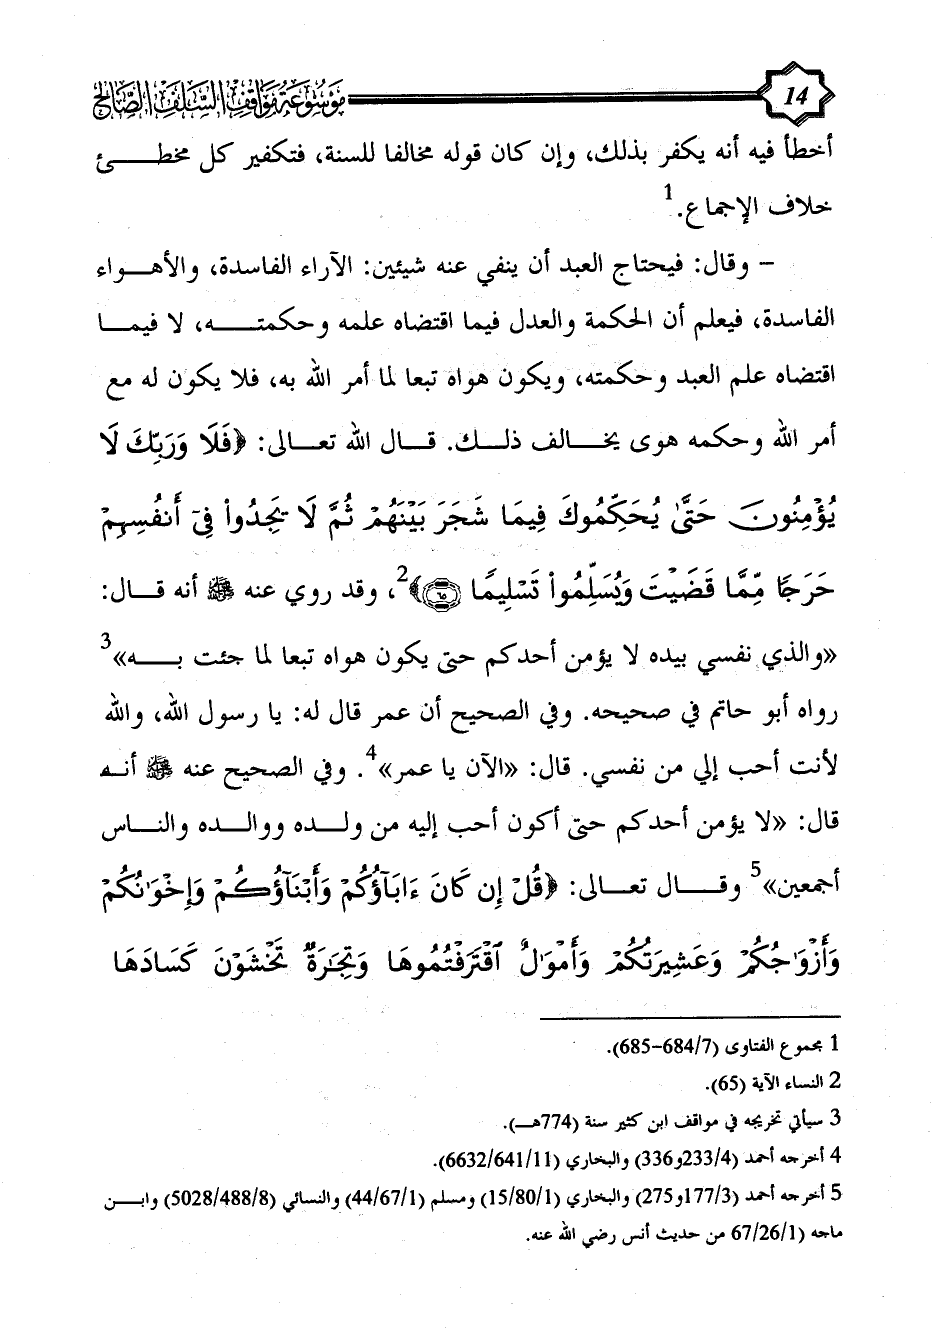 14
موسوعة مواقف السلف الصالح
أخطأ فيه أنه يكفر بذلك، وإن كان قوله مخالفا للسنة، فتكفير كل مخطـــــئ
خلاف الإجماع.1
– وقال: فيحتاج العبد أن ينفي عنه شيئين: الآراء الفاسدة، والأهـــواء
الفاسدة، فيعلم أن الحكمة والعدل فيما اقتضاه علمه وحكمتـــــه، لا فيمـــا
اقتضاه علم العبد وحكمته، ويكون هواه تبعا لما أمر الله به، فلا يكون له مع
أمر الله وحكمه هوى يخـــالف ذلـــك. قـــال الله تعـــالى: ﴿فَلَا وَرَبِّكَ لَا
يُؤْمِنُونَ حَتَّىٰ يُحَكِّمُوكَ فِيمَا شَجَرَ بَيْنَهُمْ ثُمَّ لَا يَجِدُوا۟ فِىٓ أَنفُسِهِمْ
حَرَجًا مِّمَّا قَضَيْتَ وَيُسَلِّمُوا۟ تَسْلِيمًا ﴿٦٥﴾﴾2، وقد روي عنه ﷺ أنه قـــال:
«والذي نفسي بيده لا يؤمن أحدكم حتى يكون هواه تبعا لما جئت بـــــه»3
رواه أبو حاتم في صحيحه. وفي الصحيح أن عمر قال له: يا رسول الله، والله
لأنت أحب إلي من نفسي. قال: «الآن يا عمر»4. وفي الصحيح عنه ﷺ أنـــه
قال: «لا يؤمن أحدكم حتى أكون أحب إليه من ولـــده ووالـــده والنـــاس
أجمعين»5 وقـــال تعـــالى: ﴿قُلْ إِن كَانَ ءَابَآؤُكُمْ وَأَبْنَآؤُكُمْ وَإِخْوَٰنُكُمْ
وَأَزْوَٰجُكُمْ وَعَشِيرَتُكُمْ وَأَمْوَٰلٌ ٱقْتَرَفْتُمُوهَا وَتِجَـٰرَةٌ تَخْشَوْنَ كَسَادَهَا
1 مجموع الفتاوى (684/7–685).
2 النساء الآية (65).
3 سيأتي تخريجه في مواقف ابن كثير سنة (774هـــ).
4 أخرجه أحمد (233/4و336) والبخاري (6632/641/11).
5 أخرجه أحمد (177/3و275) والبخاري (15/80/1) ومسلم (44/67/1) والنسائي (5028/488/8) وابـــن
ماجه (67/26/1 من حديث أنس رضي الله عنه.